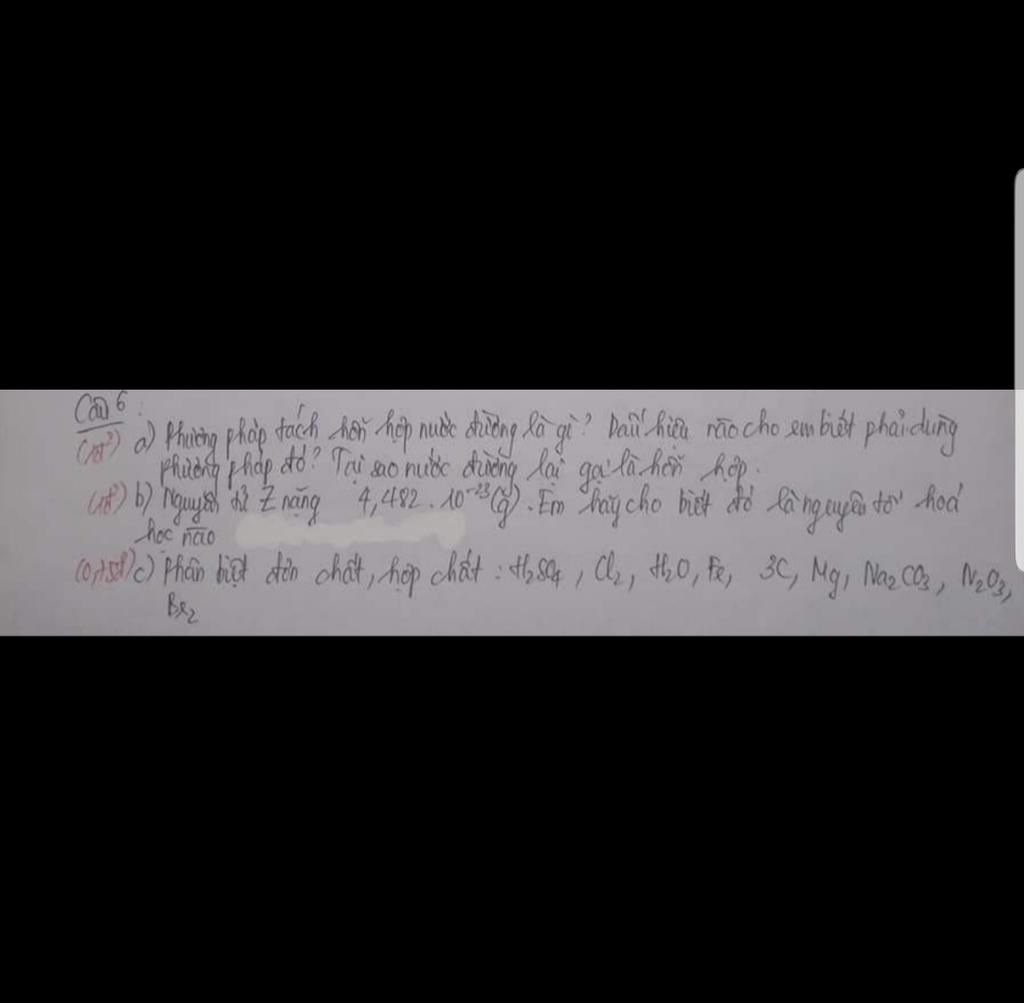 Câu 6 :
(1đ) a) Phương pháp tách hỗn hợp nước đường là gì? Dấu hiệu nào cho em biết phải dùng
phương pháp đó? Tại sao nước đường lại gọi là hỗn hợp.
(1đ) b) Nguyên tử Z nặng 4,482 . 10⁻²³(g). Em hãy cho biết đó là nguyên tố hoá
học nào
c) Phân biệt đơn chất, hợp chất : H₂SO₄, Cl₂, H₂O, Fe, 3C, Mg, Na₂CO₃, N₂O₃,
Br₂